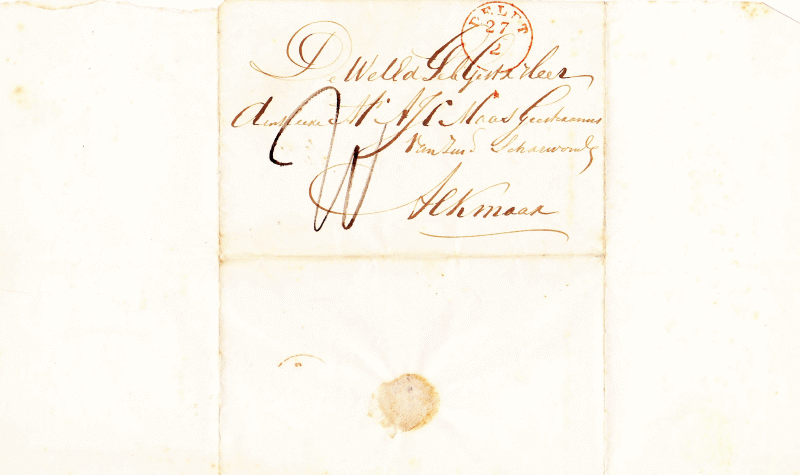 DELFT
27
2
De WelEd Geb Gestr Heer
den Heere Mr A J C Maas Geesteranus
Van Zuid Scharwoude
Alkmaar